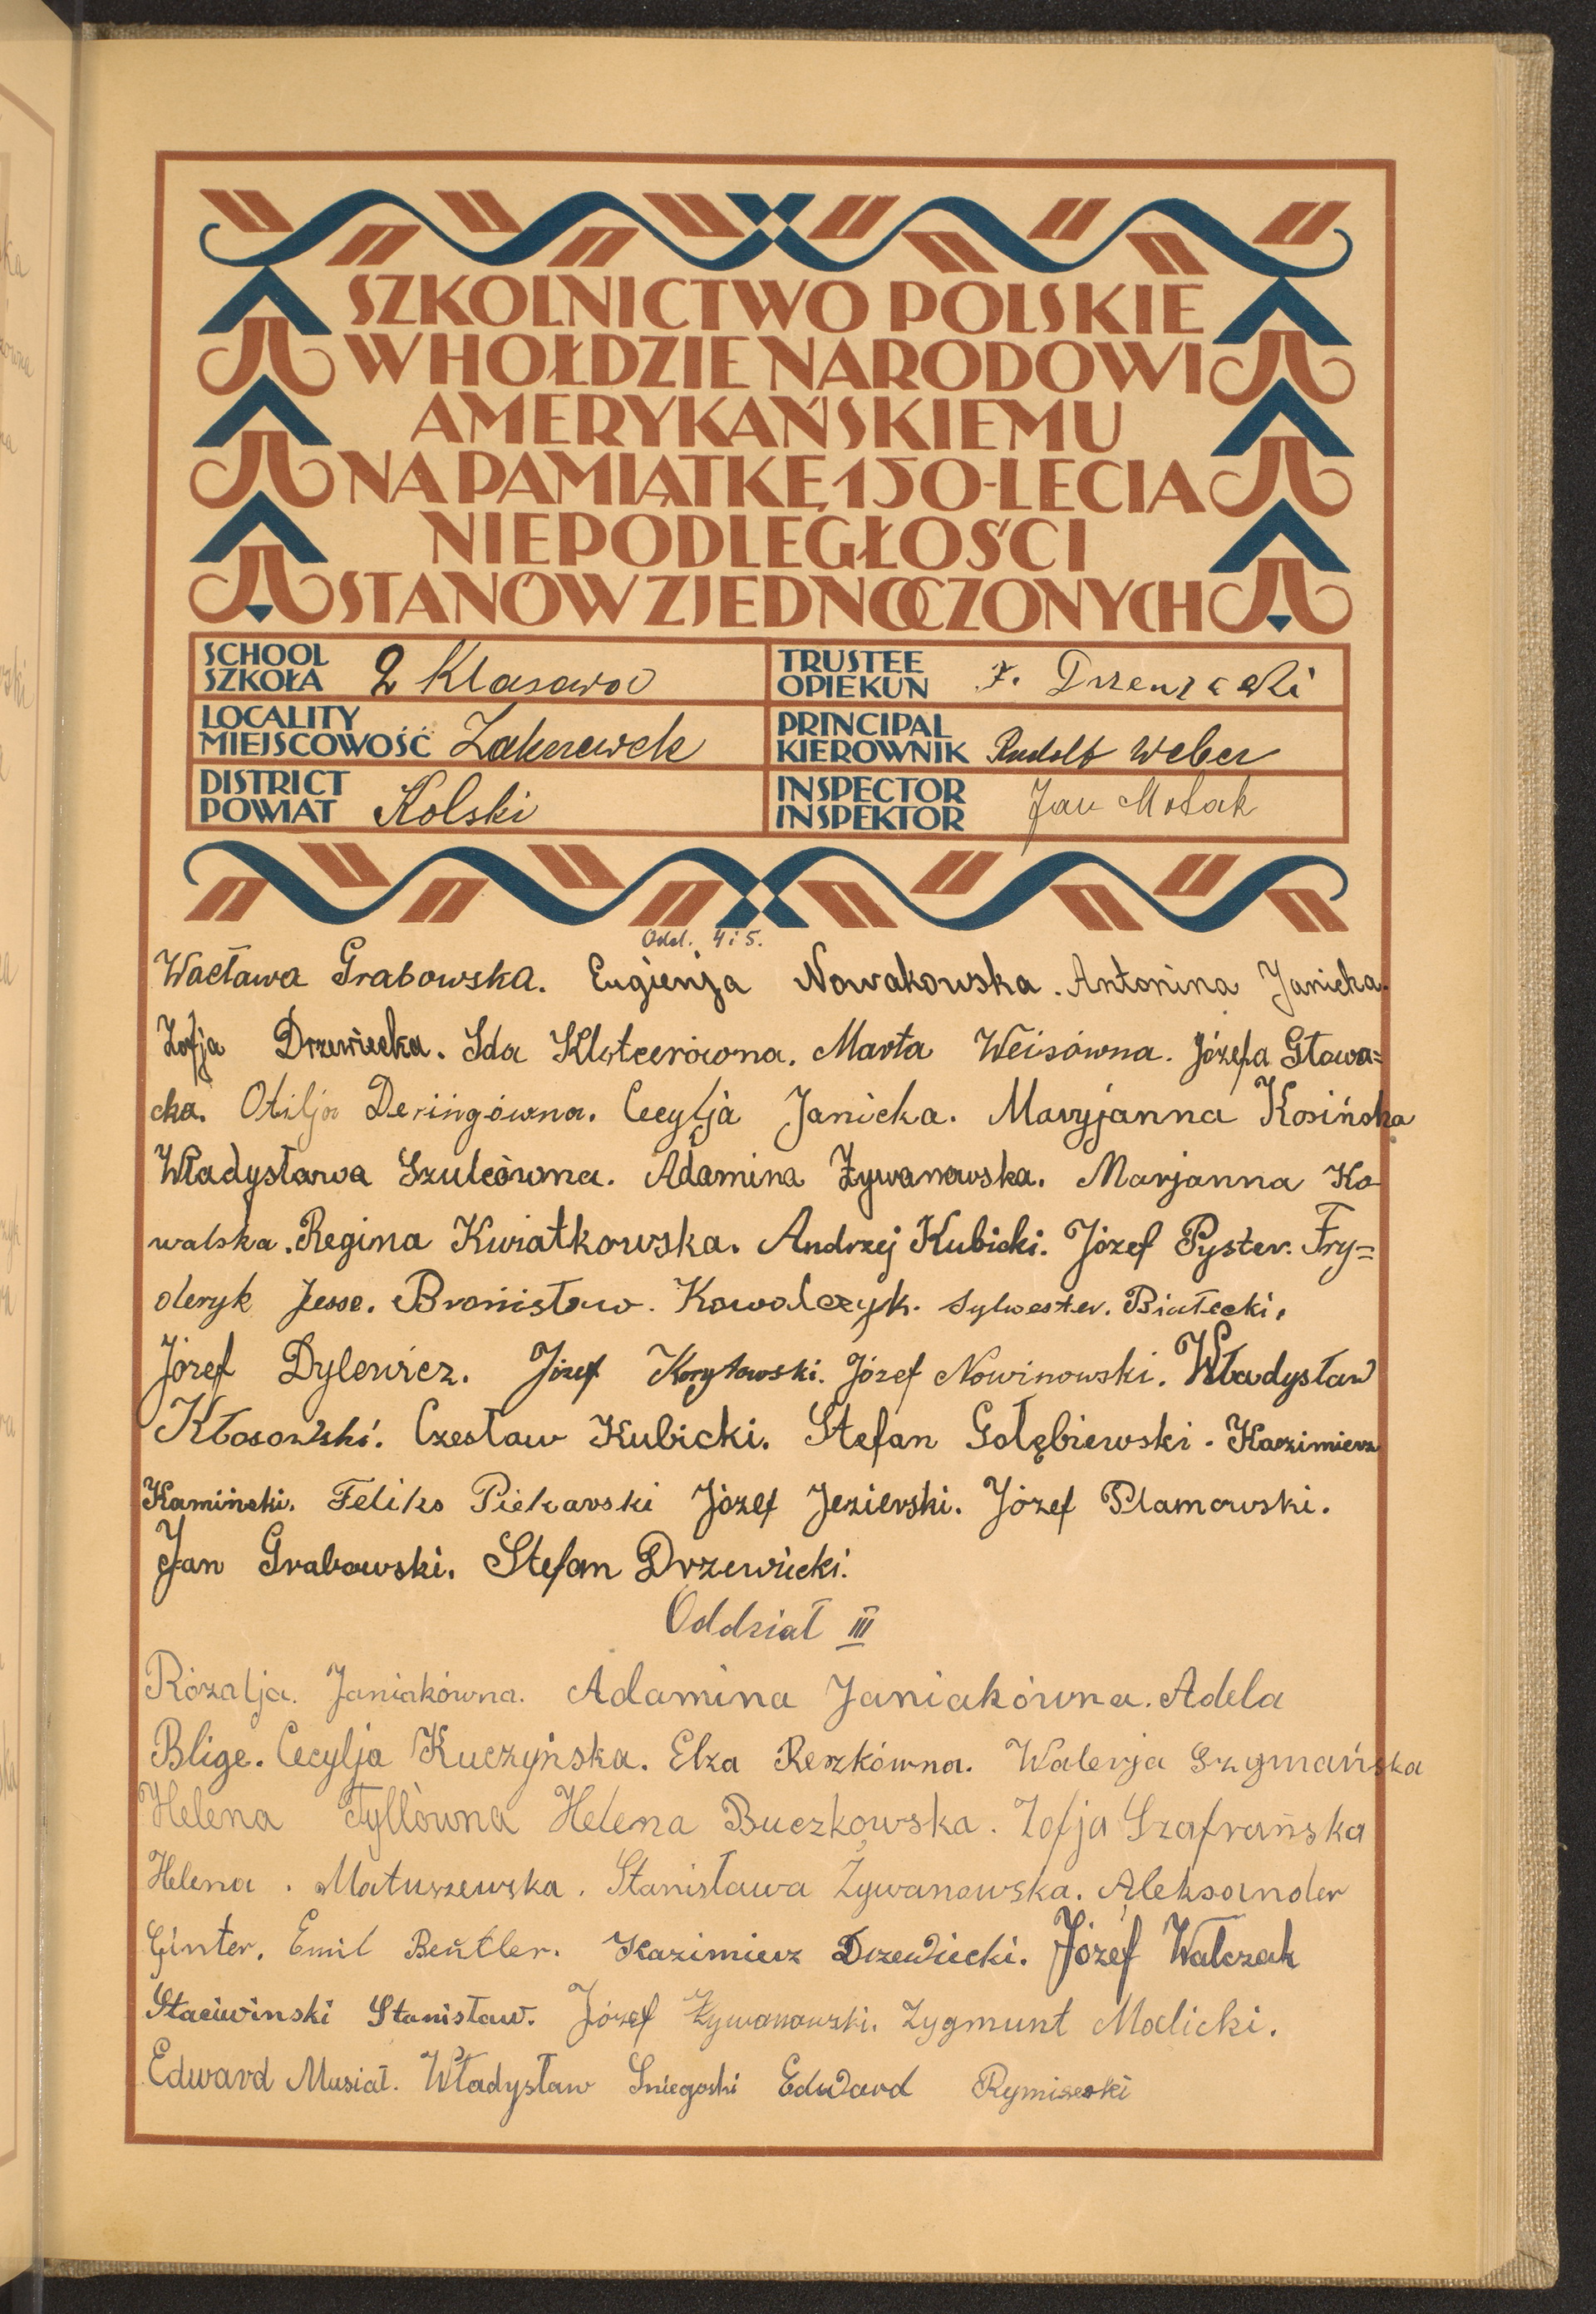 SZKOLNICTWO POLSKIE
W HOŁDZIE NARODOWI
AMERYKAŃSKIEMU
NA PAMIĄTKĘ 150-LECIA
NIEPODLEGŁOŚCI
STANÓW ZJEDNOCZONYCH
SCHOOL
SZKOŁA 2 Klasowa
TRUSTEE
OPIEKUN
LOCALITY
MIEJSCOWOŚĆ Zakrzewek
PRINCIPAL
KIEROWNIK Rudolf Weber
DISTRICT
POWIAT Kolski
INSPECTOR
INSPEKTOR Jan
Odd. 4 i 5.
Wacława Grabowska. Eugienja Nowakowska. Antonina Janicka.
Zofja Drzewiecka. Ida Marta Weisówna. Józefa Głowa=
cka. Otilja Deringówna. Cecylja Janicka. Maryjanna Kosińska
Władysława Szulcówna. Adamina Żywanowska. Marjanna Ko
walska. Regina Kwiatkowska. Andrzej Kubicki. Józef Pyster. Fry=
deryk Jesse. Bronisław. Kowalczyk. Sylwester. Białecki.
Józef Dylewicz. Józef Korytowski. Józef Nowinowski. Władysław
Kłosowski. Czesław Kubicki. Stefan Gołębiewski. Kazimierz
Kamiński. Feliks Piekarski Józef Jezierski. Józef Plamowski.
Jan Grabowski. Stefan Drzewicki.
Oddział III
Rózalja. Janiakówna. Adamina Janiakówna. Adela
Blige. Cecylja Kuczyńska. Elza Reszkówna. Walerja Szgmańska
Helena Tyllówna Helena Buczkowska. Zofja Szafrańska
Helena. Matuszewska. Stanisława Żywanowska. Aleksander
Ginter. Emil Beutler. Kazimierz Drzewiecki. Józef Walczak
Staciwinski Stanisław. Józef Żywanowski. Zygmunt Malicki.
Edward Musiał. Władysław Sniegoski Edward